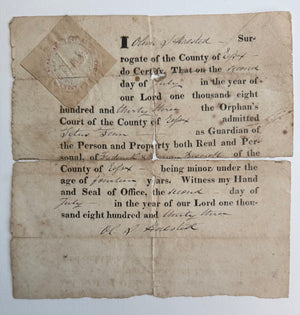 I Oliver S Halsted Sur-
rogate of the County of Essex
do Certify, That on the second
day of July in the year of
our Lord one thousand eight
hundred and thirty three the Orphan's
Court of the County of Essex admitted
as Guardian of
the Person and Property both Real and Per-
sonal, of
County of Essex being minor under the
age of fourteen years. Witness my Hand
and Seal of Office, the second day of
July in the year of our Lord one thou-
sand eight hundred and thirty three
O. S. Halsted